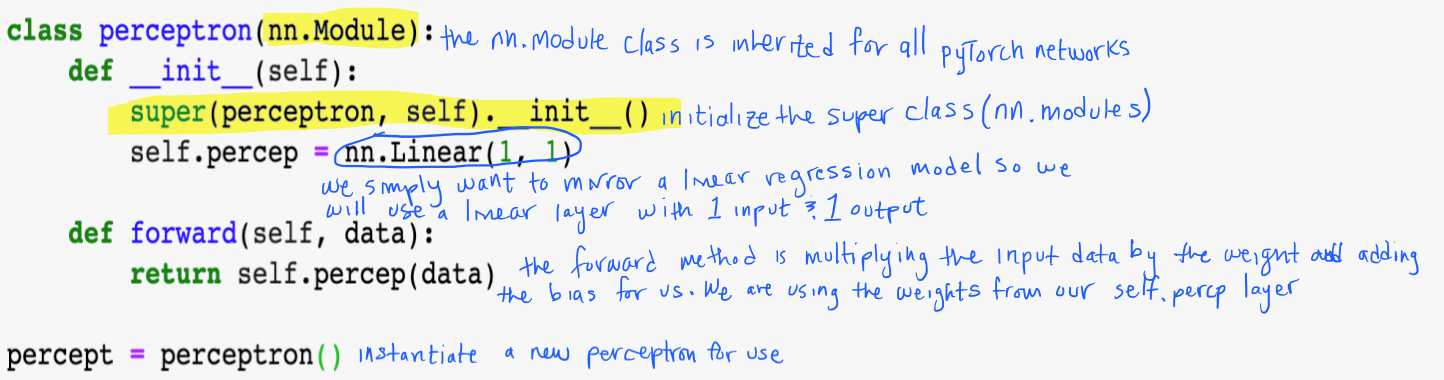 class perceptron(nn.Module): the nn.module class is inherited for all pyTorch networks
def __init__(self):
super(perceptron, self).__init__() initialize the super class (nn.modules)
self.percep = nn.Linear(1, 1)
we simply want to mirror a linear regression model so we
will use a linear layer with 1 input & 1 output
def forward(self, data):
return self.percep(data) the forward method is multiplying the input data by the weight and adding
the bias for us. We are using the weights from our self.percp layer
percept = perceptron() instantiate a new perceptron for use